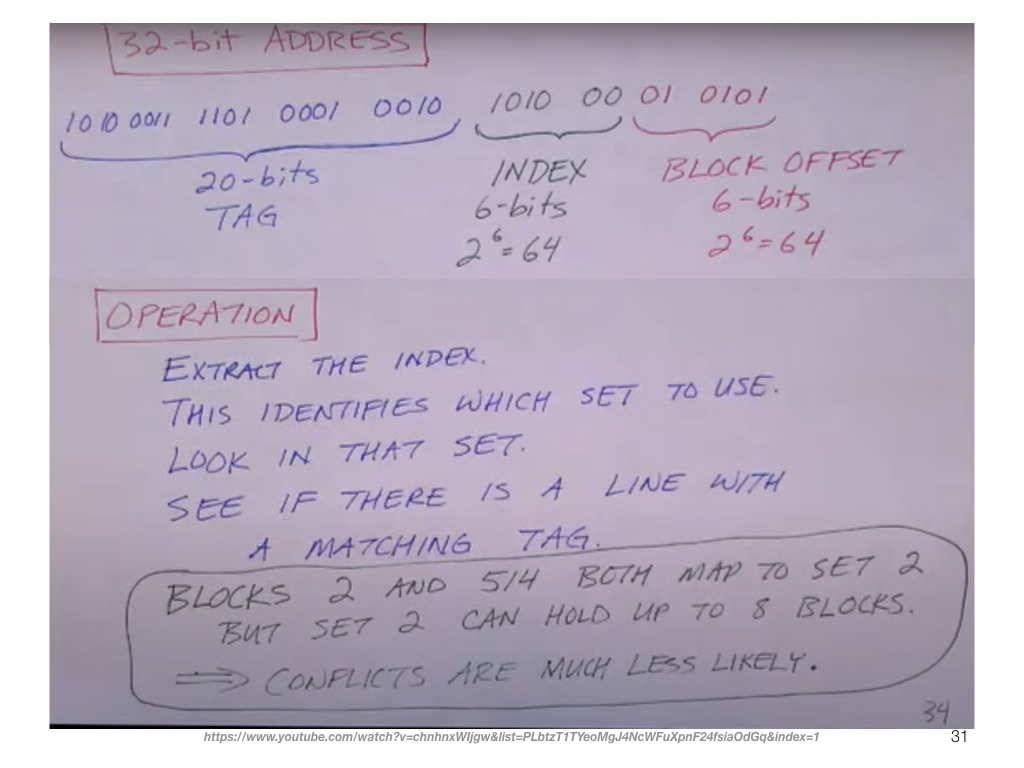 32-bit ADDRESS
1010 0011 1101 0001 0010 1010 00 01 0101
20-bits TAG
INDEX 6-bits 2^6=64
BLOCK OFFSET 6-bits 2^6=64
OPERATION
EXTRACT THE INDEX.
THIS IDENTIFIES WHICH SET TO USE.
LOOK IN THAT SET.
SEE IF THERE IS A LINE WITH
A MATCHING TAG.
BLOCKS 2 AND 514 BOTH MAP TO SET 2
BUT SET 2 CAN HOLD UP TO 8 BLOCKS.
⇒ CONFLICTS ARE MUCH LESS LIKELY.
34
https://www.youtube.com/watch?v=chnhnxWIjgw&list=PLbtzT1TYeoMgJ4NcWFuXpnF24fsiaOdGq&index=1
31